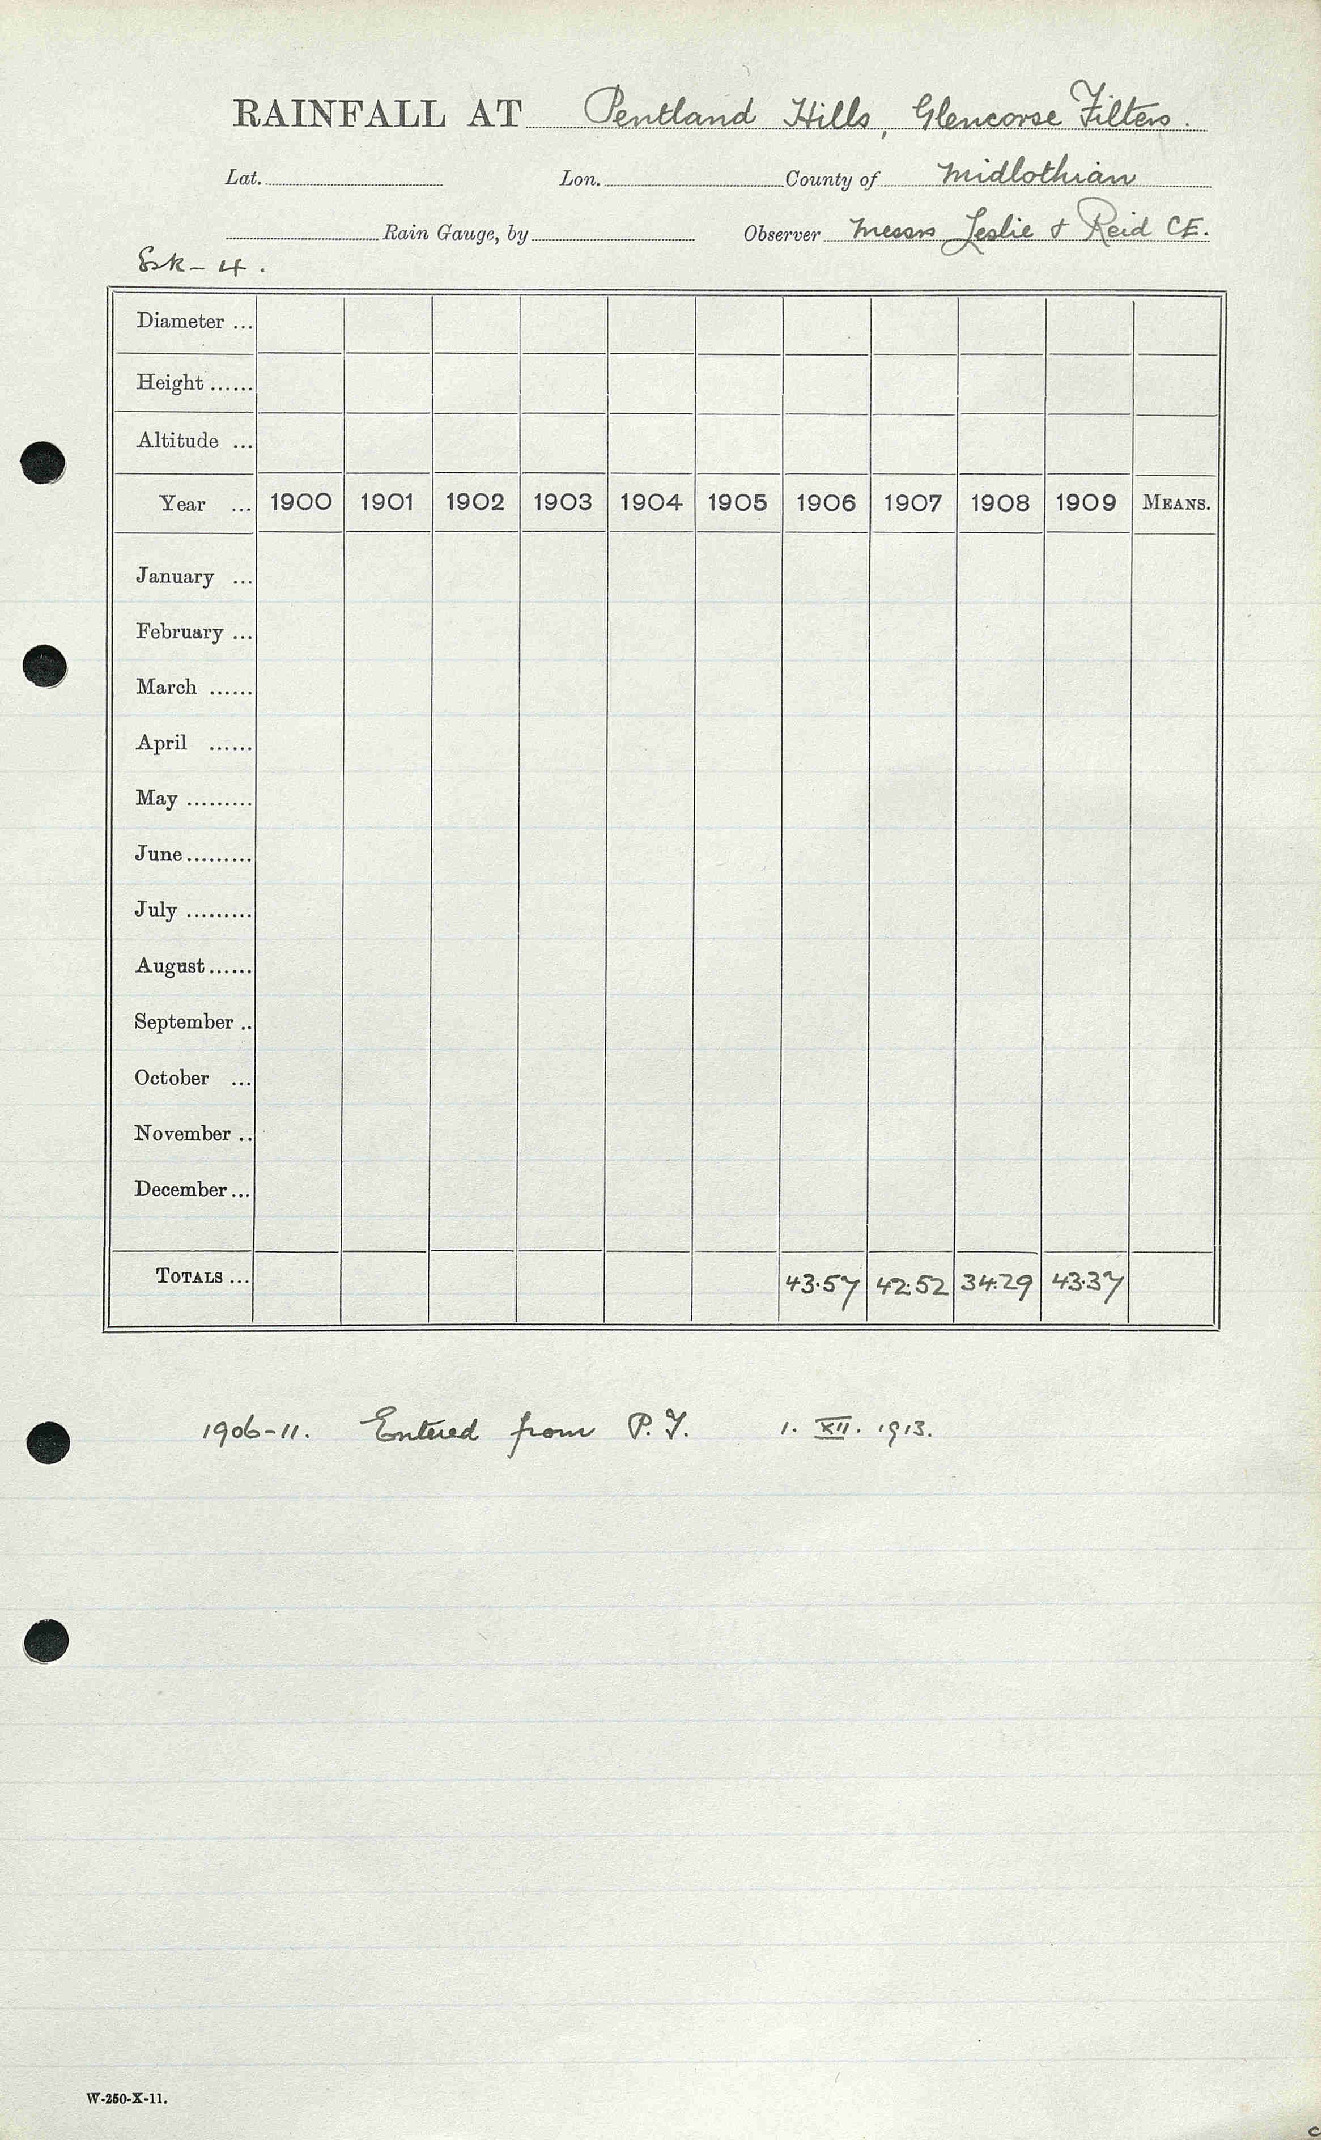 RAINFALL AT Pentland Hills, Glencorse Filters.
Lat. Lon. County of Midlothian
Rain Gauge, by Observer Messrs Leslie & Reid C.E.
Esk-4.
Diameter ...
Height ......
Altitude ...
Year ... 1900 1901 1902 1903 1904 1905 1906 1907 1908 1909 MEANS.
January ...
February ...
March ......
April ......
May .........
June .........
July .........
August ......
September ..
October ...
November ..
December ...
TOTALS ... 43.57 42.52 34.29 43.37
1906-11. Entered from P.Y. 1. XII. 1913.
W-250-X-11.